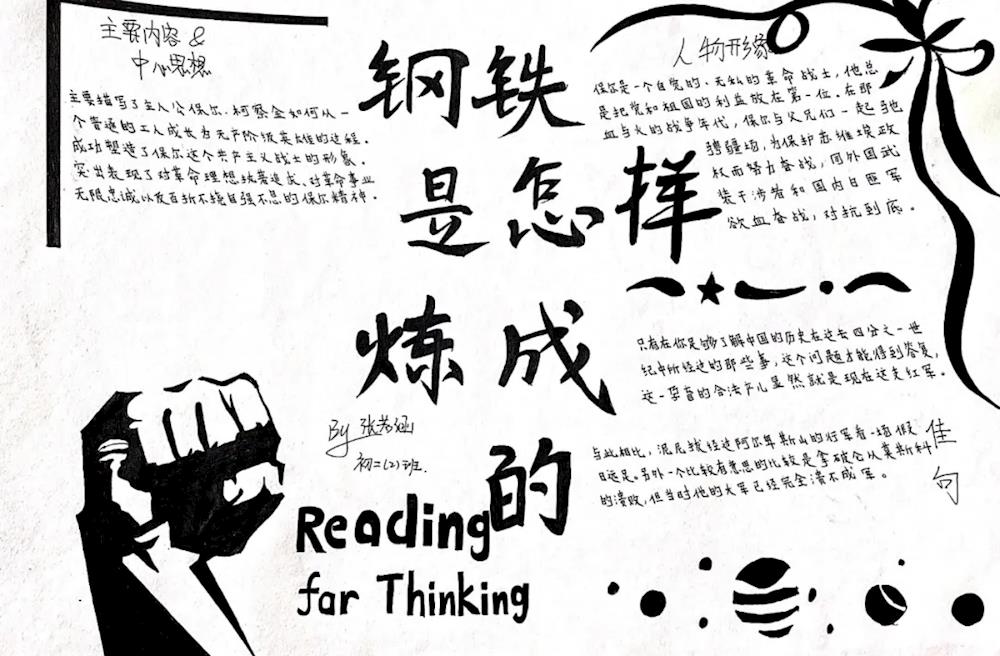 主要内容 &
中心思想
主要描写了主人公保尔.柯察金如何从一
个普通的工人成长为无产阶级英雄的过程.
成功塑造了保尔这个共产主义战士的形象.
突出表现了对革命理想执著追求、对革命事业
无限忠诚以及百折不挠自强不息的保尔精神.
钢铁
是怎样
炼成
的
By 张芳涵
初二(2)班.
Reading
far Thinking
人物形象
保尔是一个自觉的、无私的革命战士，他总
是把党和祖国的利益放在第一位。在那
血与火的战争年代，保尔与父兄们一起驰
骋疆场，为保护苏维埃政
权而努力奋战，同外国武
装干涉者和国内白匪军
欲血奋战，对抗到底。
只有在你足够了解中国的历史在过去四分之一世
纪中所经过的那些事，这个问题才能得到答复，
这一孕育的合法产儿显然就是现在这支红军。
与此相比，汉尼拔经过阿尔卑斯山的行军看一场假
日远足。另外一个比较有意思的比较是拿破仑从莫斯科
的溃败，但当时他的大军已经完全溃不成军。
佳
句